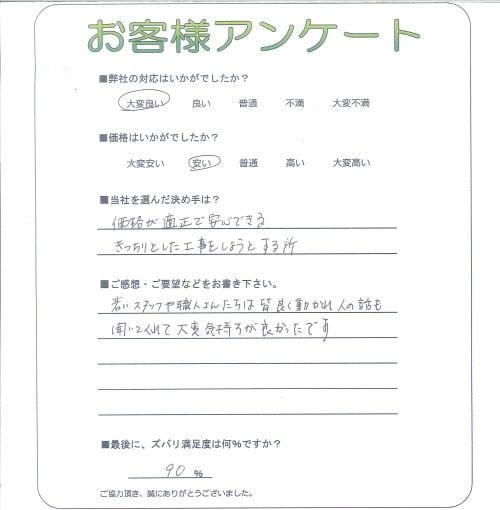 お客様アンケート
■弊社の対応はいかがでしたか?
大変良い 良い 普通 不満 大変不満
■価格はいかがでしたか?
大変安い 安い 普通 高い 大変高い
■当社を選んだ決め手は?
価格が適正で安心できる
きっちりとした工事をしようとする所
■ご感想・ご要望などをお書き下さい。
若いスタッフや職人さんたちは皆良く動かれ人の話も
聞いてくれて大変気持ちが良かったです
■最後に、ズバリ満足度は何%ですか?
90 %
ご協力頂き、誠にありがとうございました。